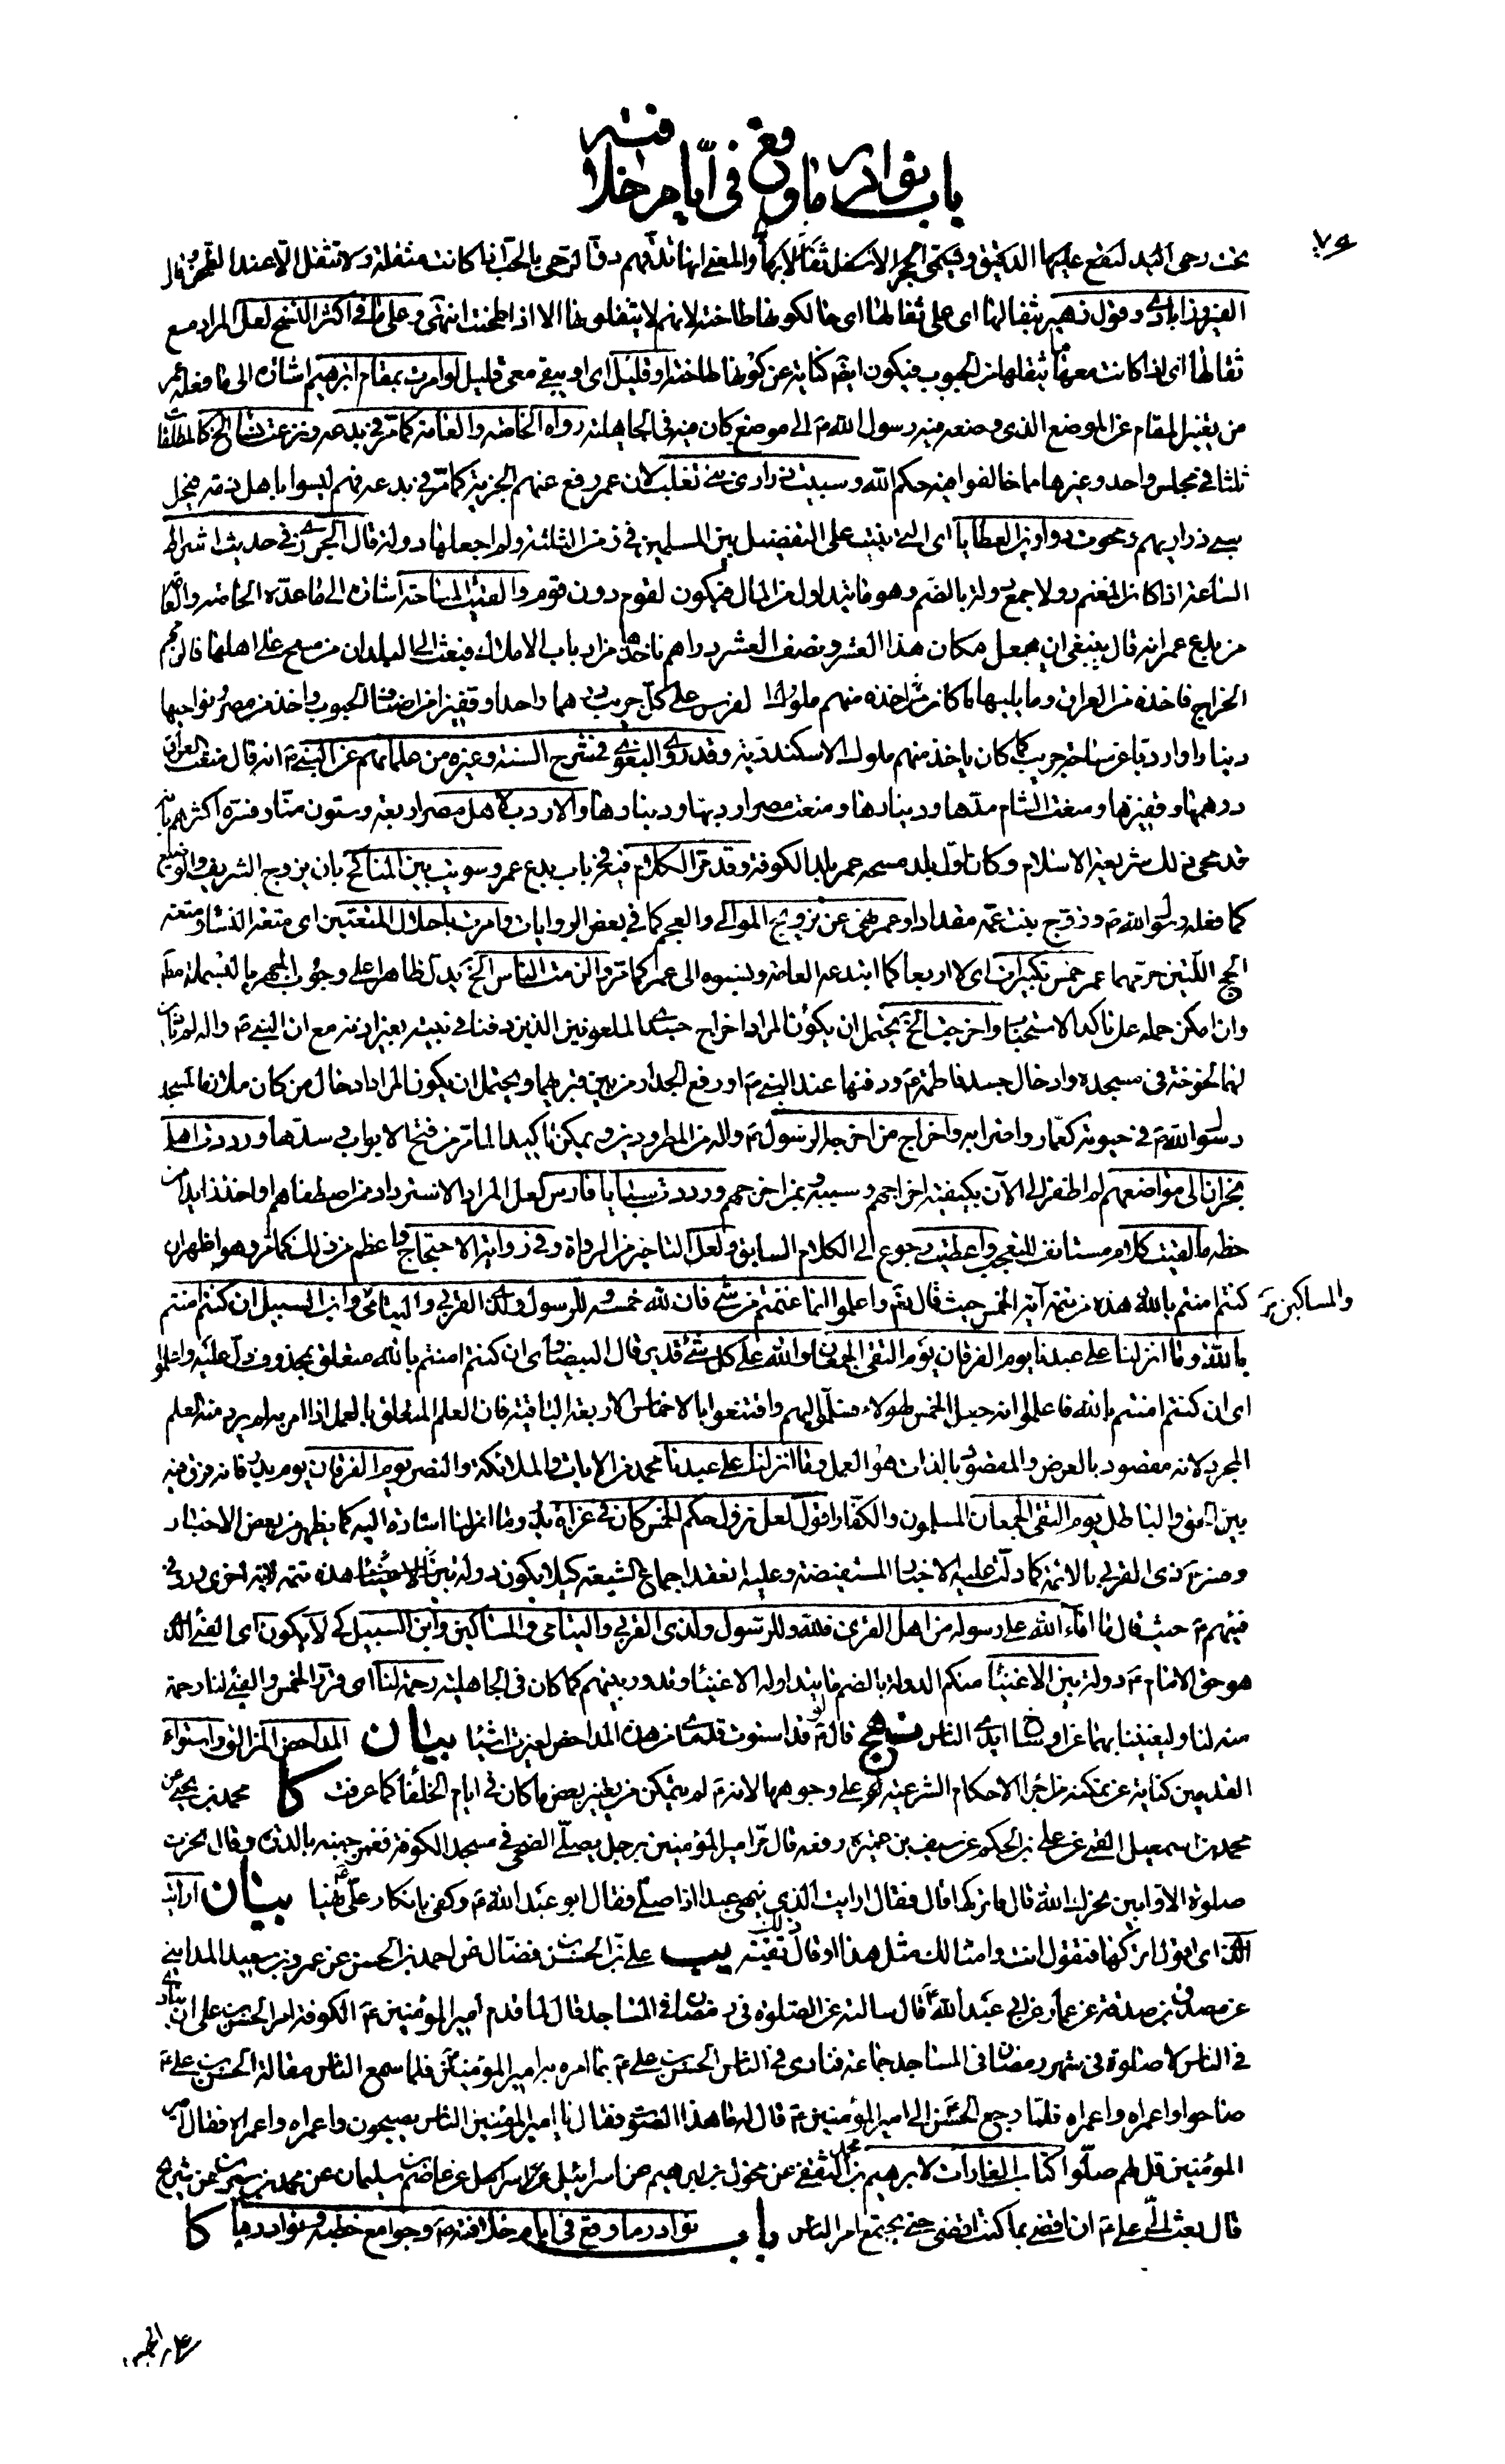 باب نوادر ما وقع في أيام خلافته
تحت رحى اليد ليقع عليها الدقيق ويسمى الحجر الأسفل ثفالا بها والمعنى انها تدقهم دق الرحى بالحب اذا كانت مثفلة ولا تثفل الا عند الطحن وقال
الفيروزآبادي وقول زهير بثفالها اى على ثفالها اى حال كونها طاحنة لانهم لا يثفلونها الا اذا طحنت انتهى وعلى ما في اكثر النسخ لعل المراد مع
ثفالها اى اذا كانت معها ما يثفلها من الحبوب فيكون ايضا كناية عن كونها طاحنة او قليل اى او يبقى معى قليل لو امرت بمقام ابرهيم اشارة الى ما فعله عمر
من تغيير المقام عن الموضع الذى وضعه فيه رسول الله ص الى موضع كان فيه في الجاهلية رواه الخاصة والعامة كما مر في بدعه ونزعت نساء الخ كالمطلقات
ثلثا في مجلس واحد وغيرها مما خالفوا فيه حكم الله وسبيت ذراري بني تغلب لان عمر رفع عنهم الجزية كما مر في بدعه فهم ليسوا باهل ذمة فيحل
سبي ذراريهم ومحوت دواوين العطايا اى التي بنيت على التفضيل بين المسلمين في زمن الثلثة ولم اجعلها دولة قال الجزري في حديث اشراط
الساعة اذا كان المغنم دولا جمع دولة بالضم وهو ما يتداول من المال فيكون لقوم دون قوم والقيت المساحة اشارة الى ما عده الخاصة والعامة
من بدع عمر انه قال ينبغي ان نجعل مكان هذا العشر ونصف العشر دراهم ناخذها من ارباب الاملاك فبعث الى البلدان من مسح على اهلها فالزمهم
الخراج فاخذه من العراق وما يليها ما كان اخذه منهم ملوك الفرس على كل جريب درهما واحدا وقفيزا من اصناف الحبوب واخذ من مصر ونواحيها
دينارا واردبا عن مساحة جريب كما كان ياخذ منهم ملوك الاسكندرية وقد روى البغوي في شرح السنة وغيره من علمائهم عن النبي ص انه قال منعت العراق
درهمها وقفيزها ومنعت الشام مدها ودينارها ومنعت مصر اردبها ودينارها والاردب لاهل مصر اربعة وستون منا وفسره اكثرهم بانه
قد محى ذلك شريعة الاسلام وكان اول بلد مسحه عمر بلد الكوفة وقد مر الكلام فيه في باب بدع عمر وسويت بين المناكح بان يزوج الشريف والوضيع
كما فعله رسول الله ص وزوج بنت عمه مقدادا وعمر نهى عن تزويج الموالي والعجم كما في بعض الروايات وامرت باحلال المتعتين اى متعة النساء ومتعة
الحج اللتين حرمهما عمر خمس تكبيرات اى لا اربعا كما ابتدعه العامة ونسبوه الى عمر كما مر والزمت الناس الخ يدل ظاهرا على وجوب الجهر بالبسملة مطلقا
وان امكن حمله على تاكد الاستحباب واخرجت الخ يحتمل ان يكون المراد اخراج جسدي الملعونين الذين دفنا في بيته بغير اذنه مع ان النبي ص واله لم يأذن
لهما لخوخة في مسجده وادخال جسد فاطمة ع ودفنها عند النبي ص او رفع الجدار من بين قبريهما ويحتمل ان يكون المراد ادخال من كان ملازما لمسجد
رسول الله ص في حيوته كعمار واضرابه واخراج من اخرجه الرسول ص واله من المطرودين ويمكن تاكيدا لما مر من فتح الابواب وسدها ورددت اهل
نجران الى مواضعهم لم اظفر الى الآن بكيفية اخراجهم وسببه وبمن اخرجهم ورددت سبايا فارس لعل المراد الاسترداد ممن اصطفاهم او اخذ زايدا من
حظه ما لقيت كلام مستانف للتعجب واعطيت رجوع الى الكلام السابق ولعل التاخير من الرواة وفي رواية الاحتجاج واعظم من ذلك كما مر وهو اظهر ان
كنتم امنتم بالله هذه من تتمة آية الخمس حيث قال تع واعلموا انما غنمتم من شئ فان لله خمسه وللرسول ولذي القربى واليتامى وابن السبيل ان كنتم امنتم
والمساكين
بالله وما انزلنا على عبدنا يوم الفرقان يوم التقى الجمعان والله على كل شئ قدير قال البيضاوي ان كنتم امنتم بالله متعلق بمحذوف دل عليه واعلموا
اى ان كنتم امنتم بالله فاعلموا انه جعل الخمس لهؤلاء فسلموا اليهم واقتنعوا بالاخماس الاربعة الباقية فان العلم المتعلق بالعمل اذا امر به لم يرد منه العلم
المجرد لانه مقصود بالعرض والمقصود بالذات هو العمل وما انزلنا على عبدنا محمد من الايات والملائكة والنصر يوم الفرقان يوم بدر فانه فرق فيه
بين الحق والباطل يوم التقى الجمعان المسلمون والكفار اقول لعل نزول حكم الخمس كان في غزاة بدر وما انزلنا اشارة اليه كما يظهر من بعض الاخبار
وفسر ذى القربى بالائمة كما دلت عليه الاخبار المستفيضة وعليه انعقد اجماع الشيعة كيلا يكون دولة بين الاغنياء هذه تتمة لآية اخرى ورد في
فيئهم ع حيث قال ما افاء الله على رسوله من اهل القرى فلله وللرسول ولذي القربى واليتامى والمساكين وابن السبيل كي لا يكون اى الفئ الذى
هو حق الامام ع دولة بين الاغنياء منكم الدولة بالضم ما يتداوله الاغنياء وتدور بينهم كما كان في الجاهلية رحمة لنا اى فرض الخمس والفئ لنا رحمة
منه لنا وليغنينا بهما عن اوساخ ايدي الناس نهج قال ع لو قد استوت قدماي من هذه المداحض لغيرت اشياء بيان المداحض المزالق واستواء
القدمين كناية عن تمكنه من اجراء الاحكام الشرعية على وجوهها لانه ع لم يتمكن من تغيير بعض ما كان في ايام الخلفاء كما عرفت كا محمد بن يحيى عن
محمد بن اسمعيل القمي عن علي بن الحكم عن سيف بن عميرة رفعه قال مر امير المؤمنين برجل يصلي الضحى في مسجد الكوفة فغمز جنبه بالدرة وقال نحرت
صلوة الاوابين نحرك الله قال فاتركها قال فقال ارايت الذي ينهى عبدا اذا صلى فقال ابو عبد الله ع وكفى بانكار علي ع نهيا بيان ارايت
الذى اى اقول اتركها فتقول انت وامثالك مثل هذا او قال ذلك تقية يب علي بن الحسن بن فضال عن احمد بن الحسن عن عمرو بن سعيد المدايني
عن مصدق بن صدقة عن عمار عن ابي عبد الله ع قال سالته عن الصلوة في رمضان في المساجد قال لما قدم امير المؤمنين ع الكوفة امر الحسن بن علي ان ينادي
في الناس لا صلوة في شهر رمضان في المساجد جماعة فنادى في الناس الحسن بن علي ع بما امره به امير المؤمنين فلما سمع الناس مقالة الحسن بن علي ع
صاحوا واعمراه واعمراه فلما رجع الحسن الى امير المؤمنين ع قال له ما هذا الصوت فقال يا امير المؤمنين الناس يصيحون واعمراه واعمراه فقال امير
المؤمنين قل لهم صلوا كتاب الغارات لابرهيم بن محمد الثقفي عن مخول بن ابرهيم عن اسرائيل عن عاصم بن سليمان عن محمد بن سيرين عن شريح
قال بعث الي علي ع ان اقضى بما كنت اقضى حتى يجتمع امر الناس باب نوادر ما وقع في ايام خلافته ع وجوامع خطبه ونوادرها كا